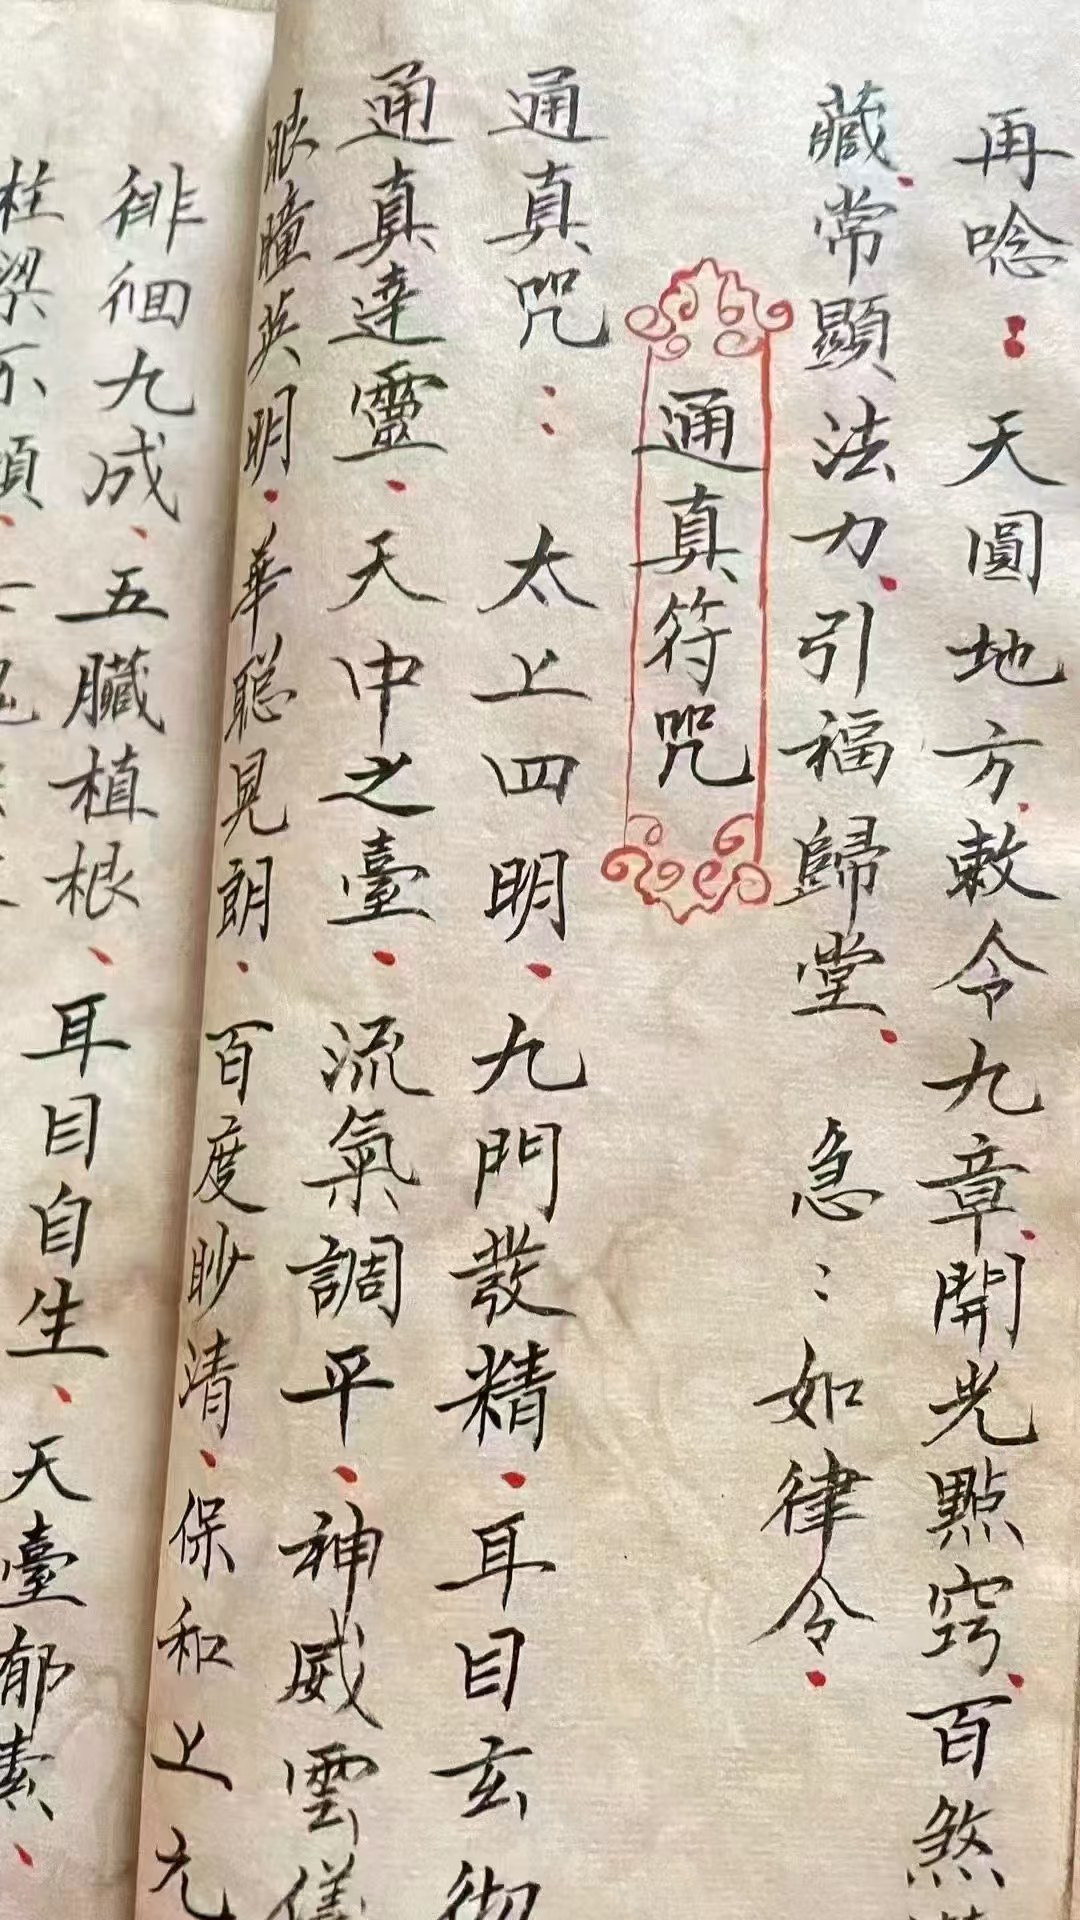 再唸：天圓地方敕令九章開光點竅百煞
藏常顯法力引福歸堂 急：：如律令
通真符咒
通真咒：太上四明九門發精耳目玄彻
通真達靈天中之臺流氣調平神威雲儀
眼瞳英明華聪晃朗百度眇清保和上元
徘徊九成五臟植根耳目自生天臺郁素
柱梁不傾